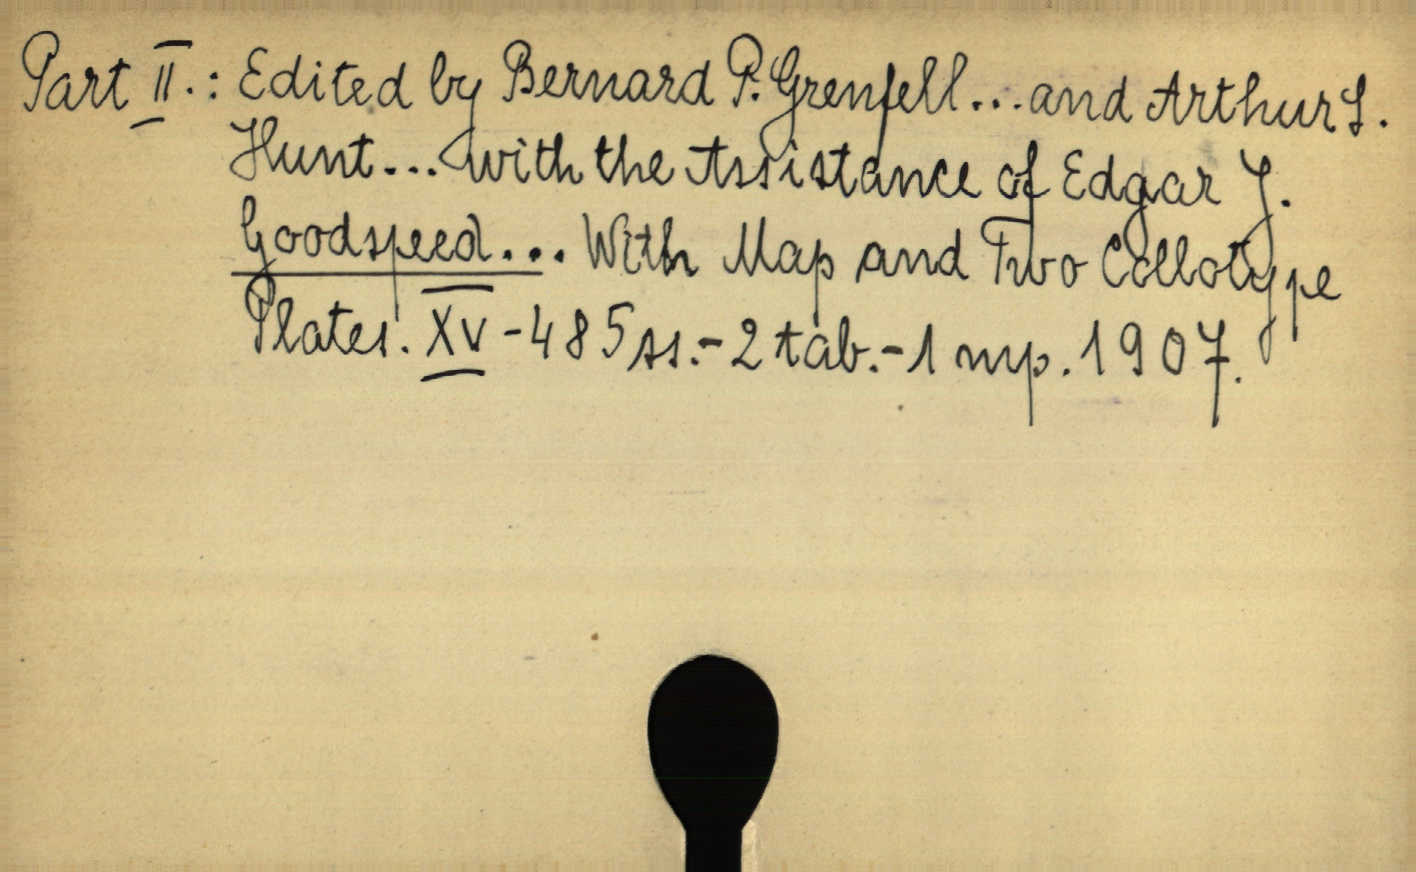 Part II.: Edited by Bernard P. Grenfell... and Arthur S.
Hunt... with the Assistance of Edgar J.
Goodspeed... With Map and Two Collotype
Plates. XV - 485 ss. - 2 tab. - 1 mp. 1907.